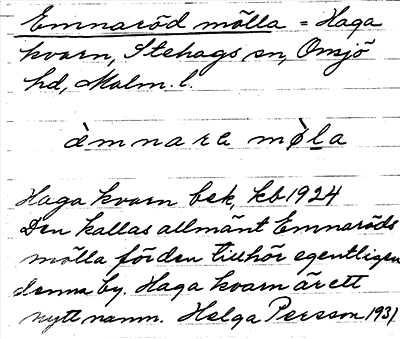 Emnaröd mölla = Haga
kvarn, Stehags sn, Onsjö
hd, Malm. l.
àmnara mø̀la
Haga kvarn bek, kb 1924
Den kallas allmänt Emnaröds
mölla för den tillhör egentligen
denna by. Haga kvarn är ett
nytt namn. Helga Persson 1931